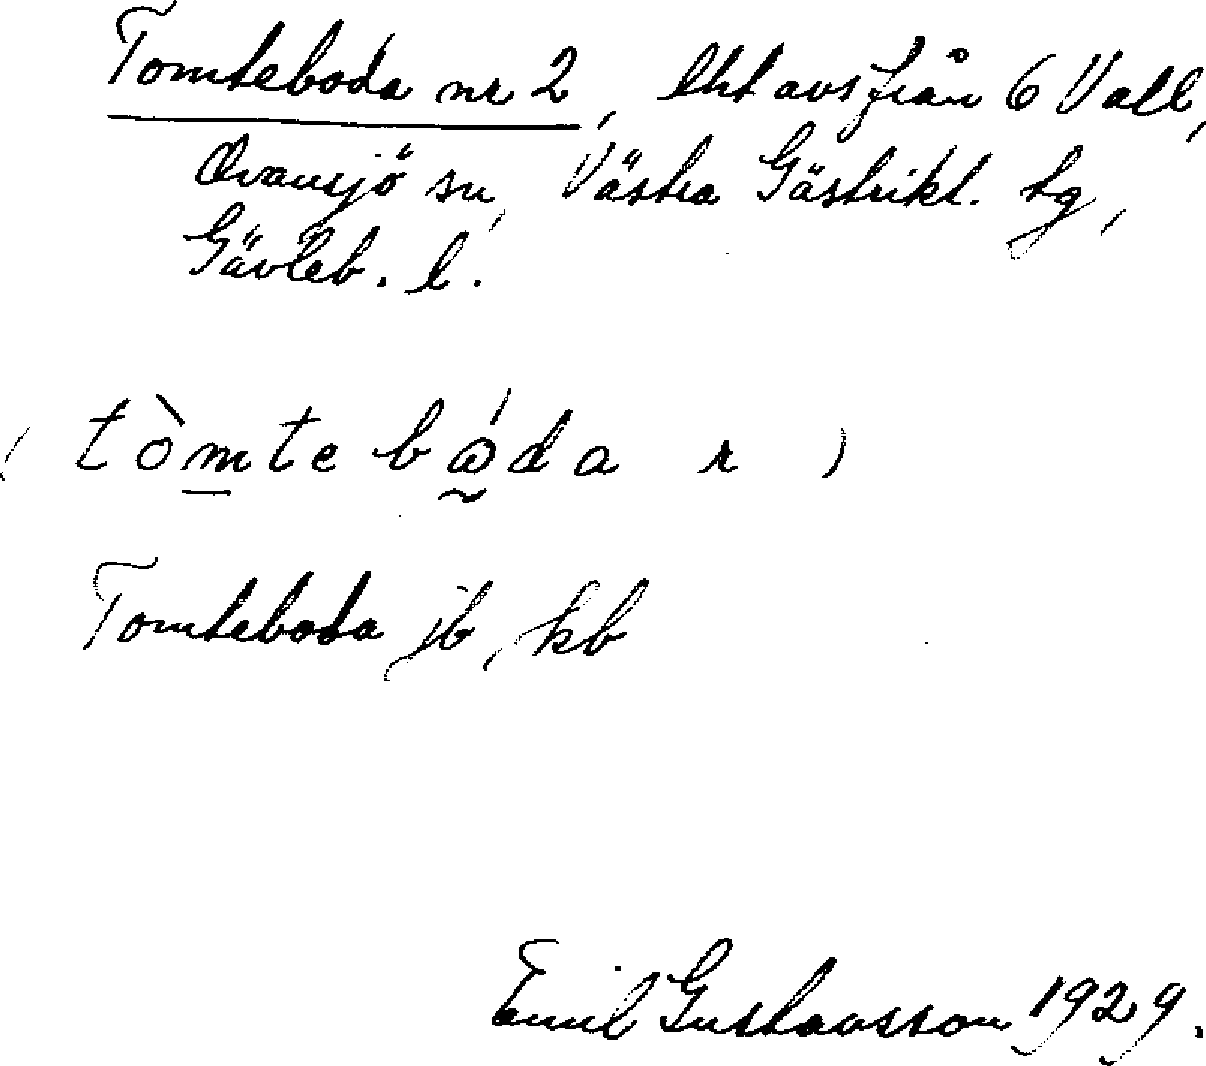 Tomteboda nr 2, lht avs från 6 Vall,
Ovansjö sn, Västra Gästrikl. tg,
Gävleb. l.
(tòmtebǻda r)
Tomteboda jb, kb
Emil Gustavsson 1929.